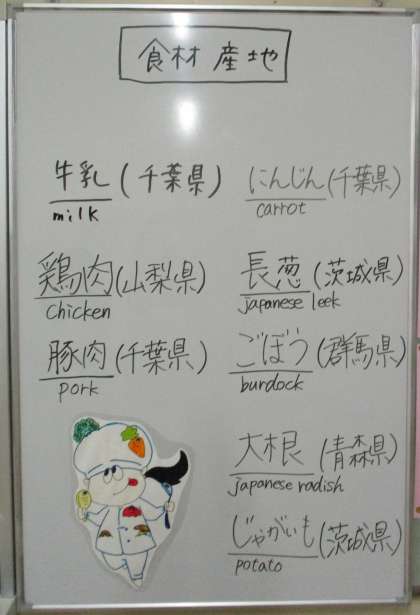 食材 産地
牛乳(千葉県)
milk
鶏肉(山梨県)
chicken
豚肉(千葉県)
pork
にんじん(千葉県)
carrot
長葱(茨城県)
japanese leek
ごぼう(群馬県)
burdock
大根(青森県)
japanese radish
じゃがいも(茨城県)
potato